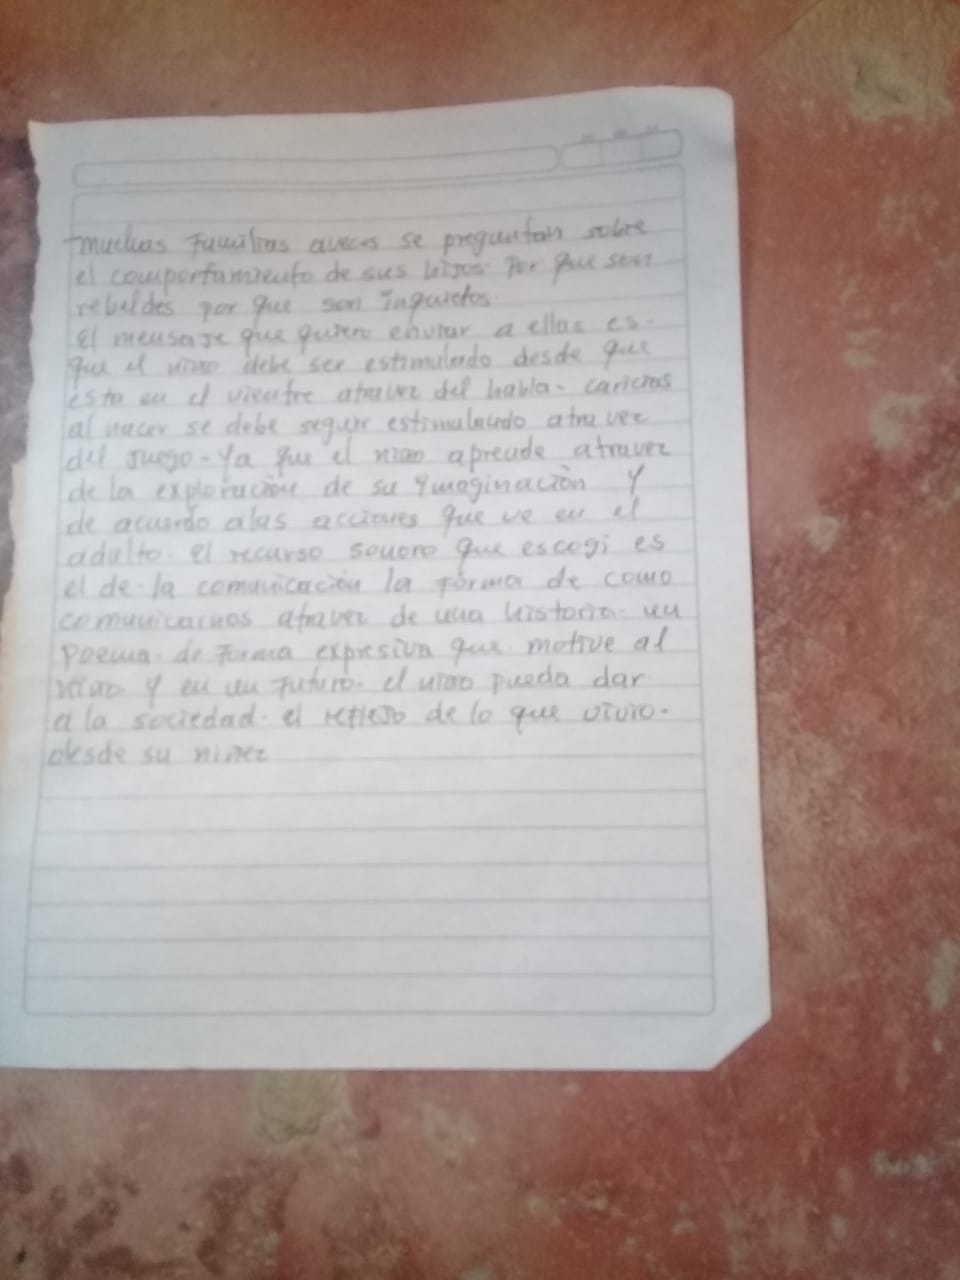 Muchas Familias aveces se preguntan sobre
el comportamiento de sus hijos. Por que son
rebeldes por que son inquietos.
El mensaje que quiero enviar a ellas es.
que el niño debe ser estimulado desde que
esta en el vientre atravez del habla- caricias
al nacer se debe seguir estimulando atravez
del juego- Ya que el niño aprende atravez
de la exploración de su Ymaginación Y
de acuerdo alas acciones que ve en el
adulto. el recurso sonoro que escogi es
el de la comunicación la Forma de como
comunicarnos atravez de una historia. un
Poema. de Forma expresiva que motive al
niño Y en un Futuro. el niño pueda dar
a la sociedad. el reflejo de lo que vivio.
desde su niñez